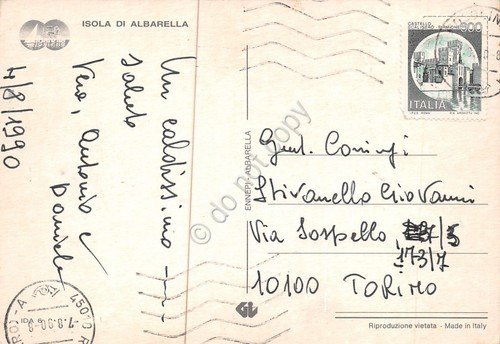 ISOLA DI ALBARELLA
Un caldissimo ---
saluto
Vera, Antonio e
Daniele
4/8/1990
ENNEPI - ALBARELLA
CASTELLO
800
ITALIA
Gent. Coniugi
Stivanello Giovanni
Via Sospello
173/7
10100 TORINO
45010 R
7.8.90-8
do not copy
Riproduzione vietata - Made in Italy